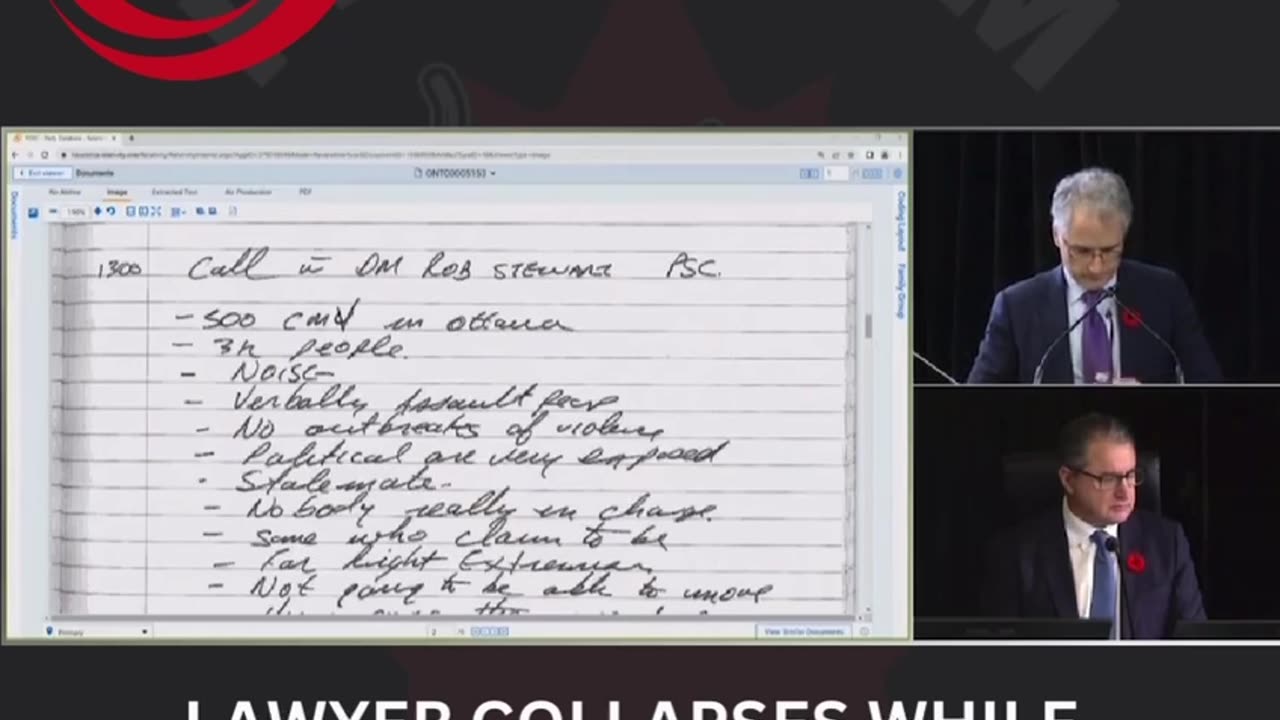 Exit viewer Documents ONT00005153 1
No Native Image Extracted Text Production PDF
Documents
Coding Layout Family Group
1300 Call DM ROB STEWART PSC.
- 500 CMV in Ottawa
- 3K people.
- Noise
- Verbally Assault
- No outbreaks of violence
- Political are very exposed
- Stalemate.
- Nobody really in charge.
- some who claim to be
- Far Right Extremism
- Not going to be able to move
Primary 2 View Similar Documents
LAWYER COLLAPSES WHILE